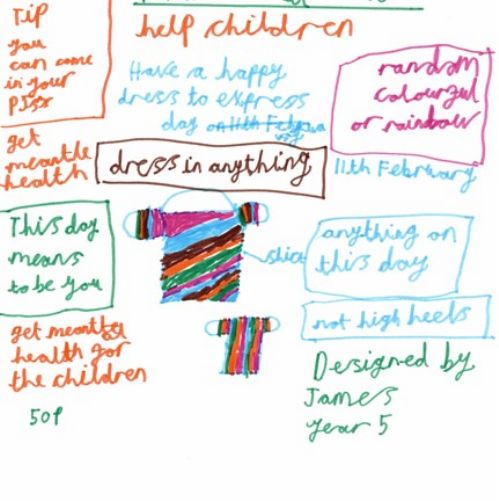 help children
Tip
you
can come
in your
PJs
Have a happy
dress to express
day on 11th
random
colourful
or rainbow
get
meantle
health
dress in anything
11th February
This day
means
to be you
anything on
this day
not high heels
get
health for
the children
50p
Designed by
James
year 5